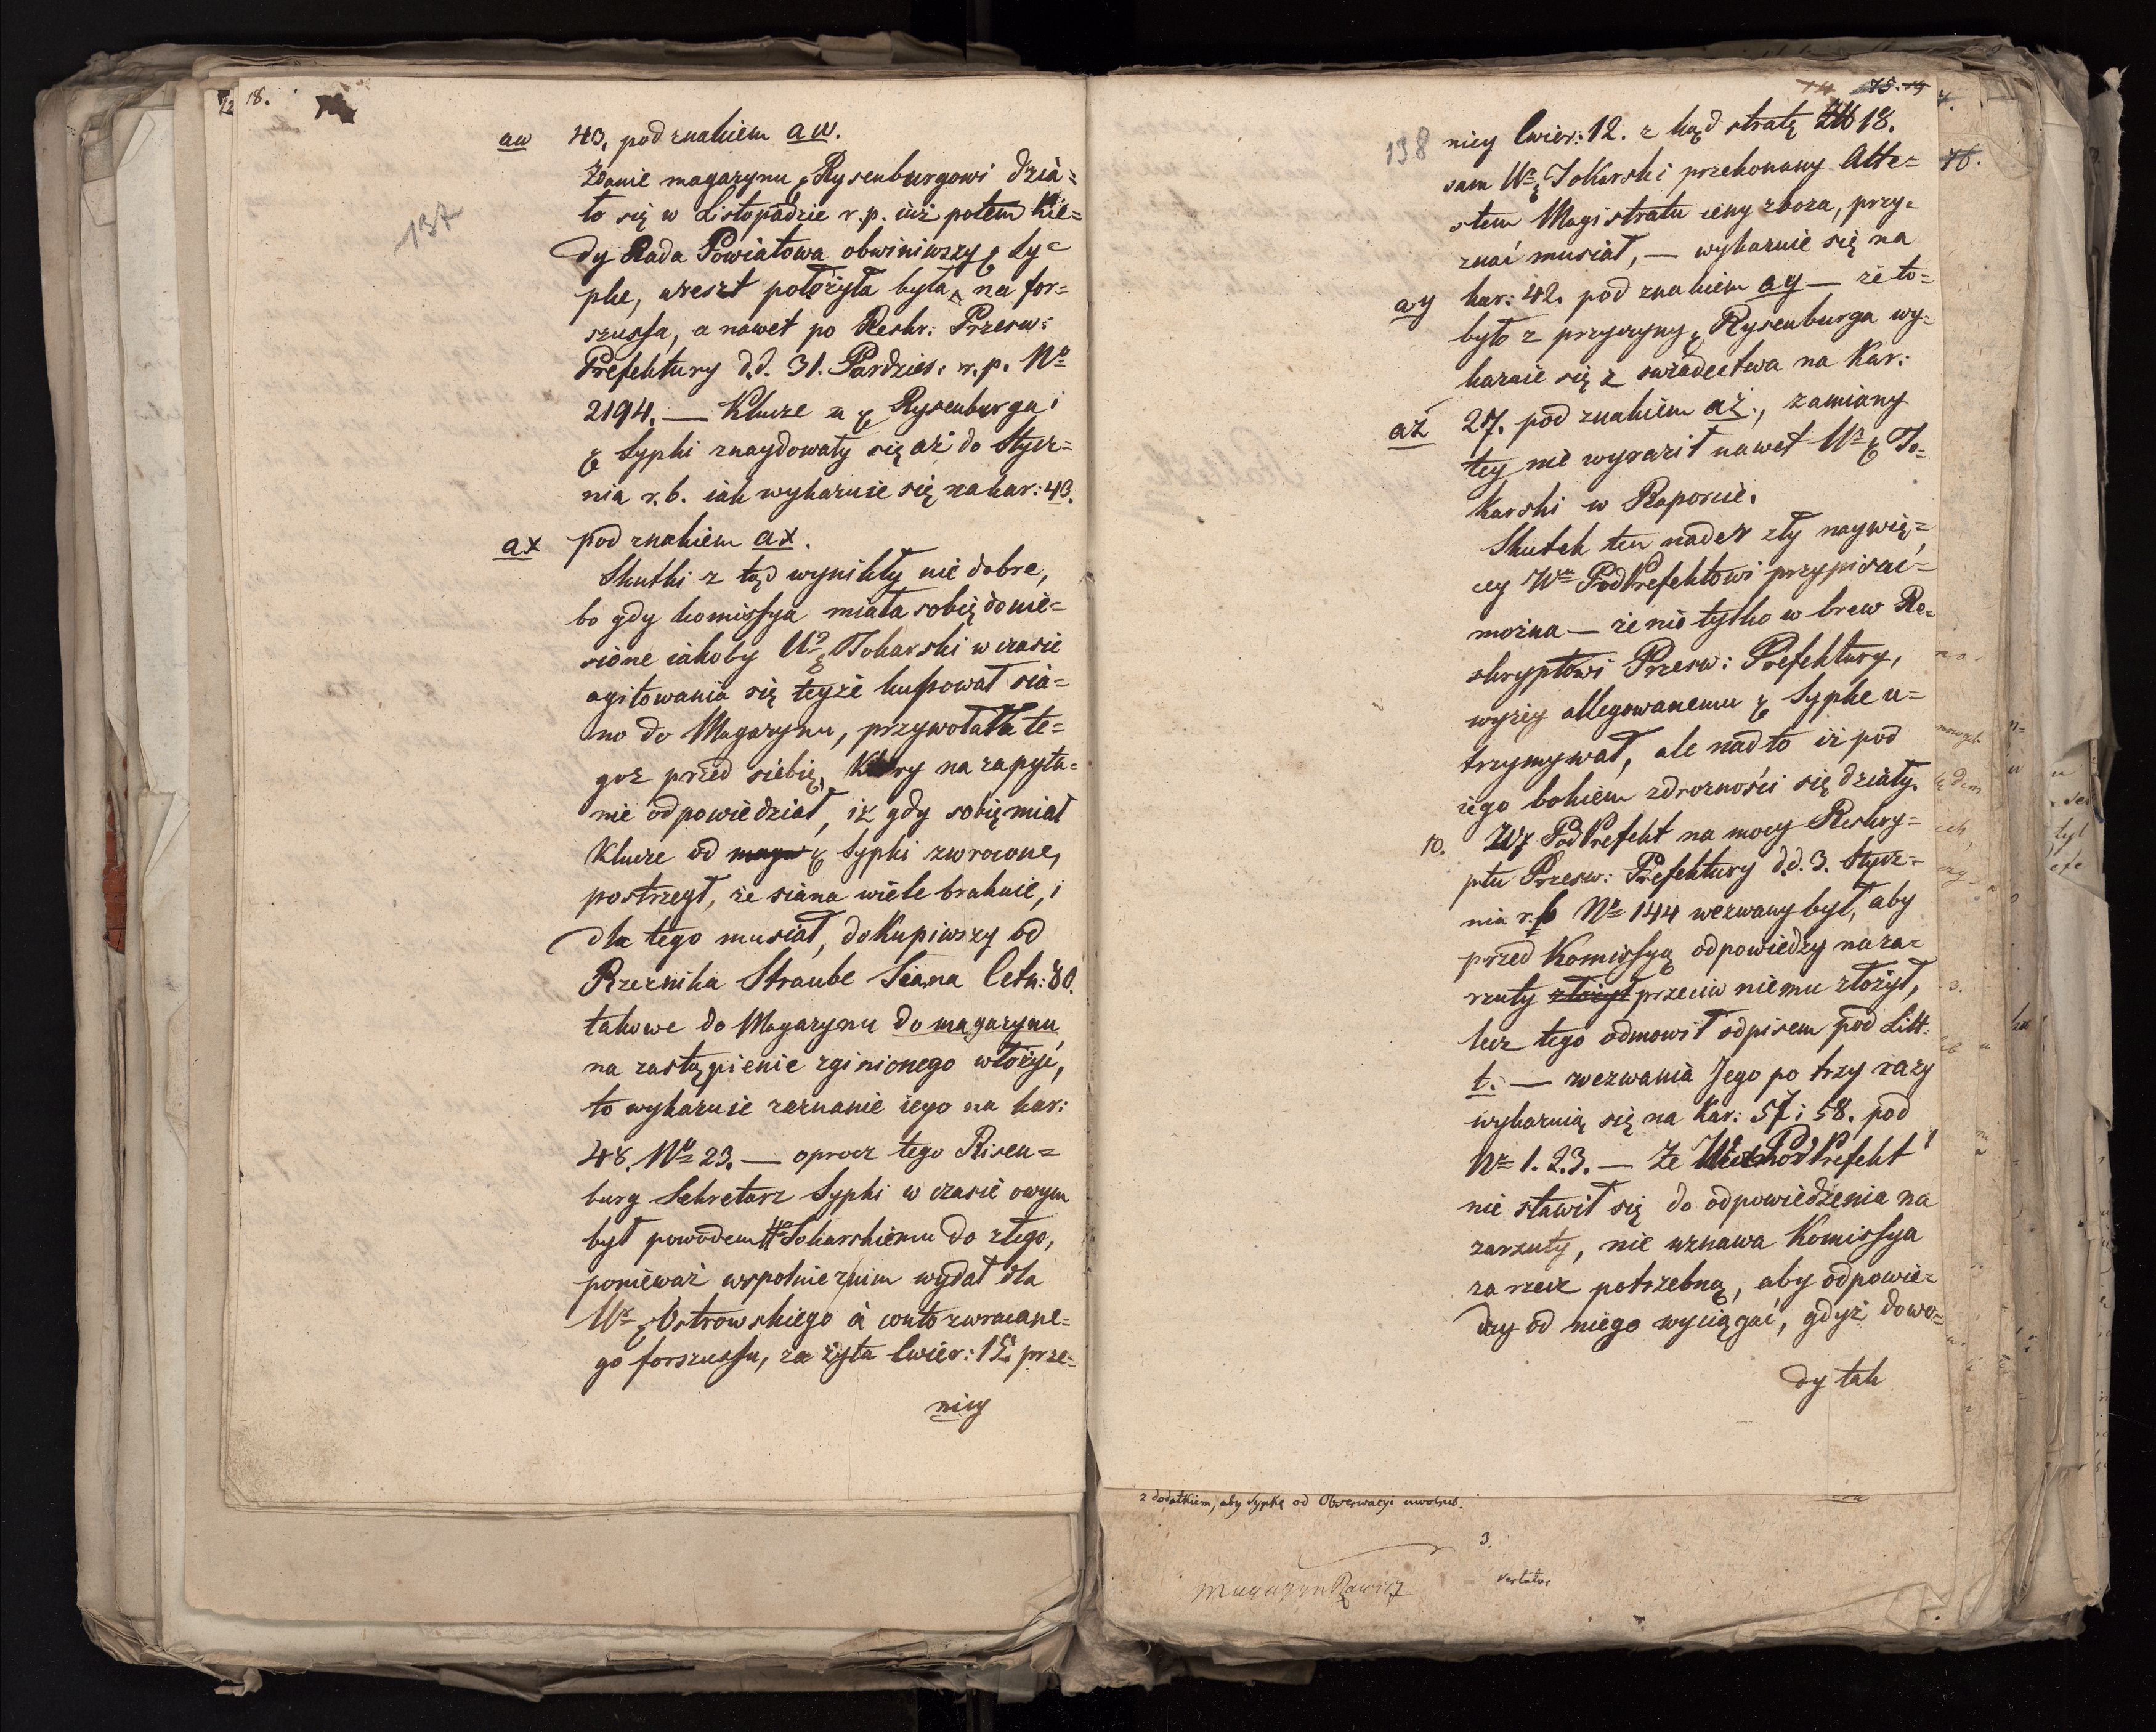 18.
137
aw 43. pod znakiem aw.
Zdanie magazynu Rysenburgowi dzia=
ło się w Listopadzie r. p. już potem kie=
dy Rada Powiatowa obwiniwszy Sy=
phe, areszt położyła była na for=
szussa, a nawet po Reskr: Przesw:
Prefektury d.d. 31. Pardzier. r. p. Nº
2194. — Klucze u Rysenburga i
Syphi znaydowały się aż do Stycz=
nia r. b. iak wykazuie się na kar: 43.
ax pod znakiem ax.
Skutki z tąd wynikły nie dobre,
bo gdy komissya miała sobię donie=
sione iakoby Wº Tokarski w czasie
agitowania się teyże kupował sia=
no do Magazynu, przywołała te=
goz przed siebię, ktory na zapyta=
nie odpowiedział, iż gdy sobię miał
Klucze od Syphi zwrocone,
postrzegł, że siana wiele brakuie, i
dla tego musiał, dokupiwszy od
Rzeznika Straube Siana Cetn: 80.
takowe do Magazynu do magazynu
na zastąpienie zginionego włożyć,
to wykazuie zeznanie iego na kar:
48. Nº 23. — oprocz tego Risen=
burg Sekretarz Syphi w czasie owym
był powodem Tokarskiemu do złego,
ponieważ wspolnie z nim wydał dla
Wº Ostrowskiego à conto zwracane=
go forszussu, za żyta Cwier: 15. psze=
nicy
138
nicy Cwier: 12. z kąd stratę 18.
sam Wº Tokarski przekonany Atte=
stem Magistratu ceny zboza, przy=
znać musiał, — wykazuie się na
ay kar: 42. pod znakiem ay — że to=
było z przyczyny Rysenburga wy=
kazuie się z swiadectwa na Kar:
aż 27. pod znakiem aż., zamiany
tey nie wyraził nawet Wº To=
karski w Raporcie.
Skutek ten nader zły naywię=
cey Wº PodPrefektowi przypisać=
można — że nie tylko w brew Re=
skryptowi Przesw: Prefektury,
wyżey allegowanemu Syphe u=
trzymywał, ale nad to iż pod
iego bokiem zdrożności się działy.
10. W PodPrefekt na mocy Reskry=
ptu Przesw: Prefektury d.d. 3. Stycz=
nia r. b Nº 144 wezwany był, aby
przed Komissyą odpowiedzy na za=
rzuty złożył przeciw niemu złożył,
lecz tego odmowił odpisem pod Litt:
t. — wezwania Jego po trzy razy
wykazuią się na Kar: 57 i 58. pod
Nº 1. 2. 3. — Że PodPrefekt
nie stawił się do odpowiedzenia na
zarzuty, nie uznawa Komissya
za rzecz potrzebną, aby odpowie=
dzy od niego wyciągać, gdyż dowo=
dy tak
z dodatkiem, aby Syphę od Obserwacyi uwolnił.
3.